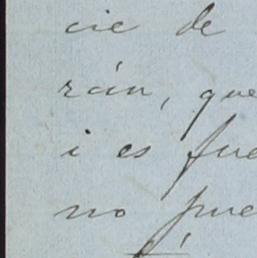 cie de
rán, que
i es fue
no pue